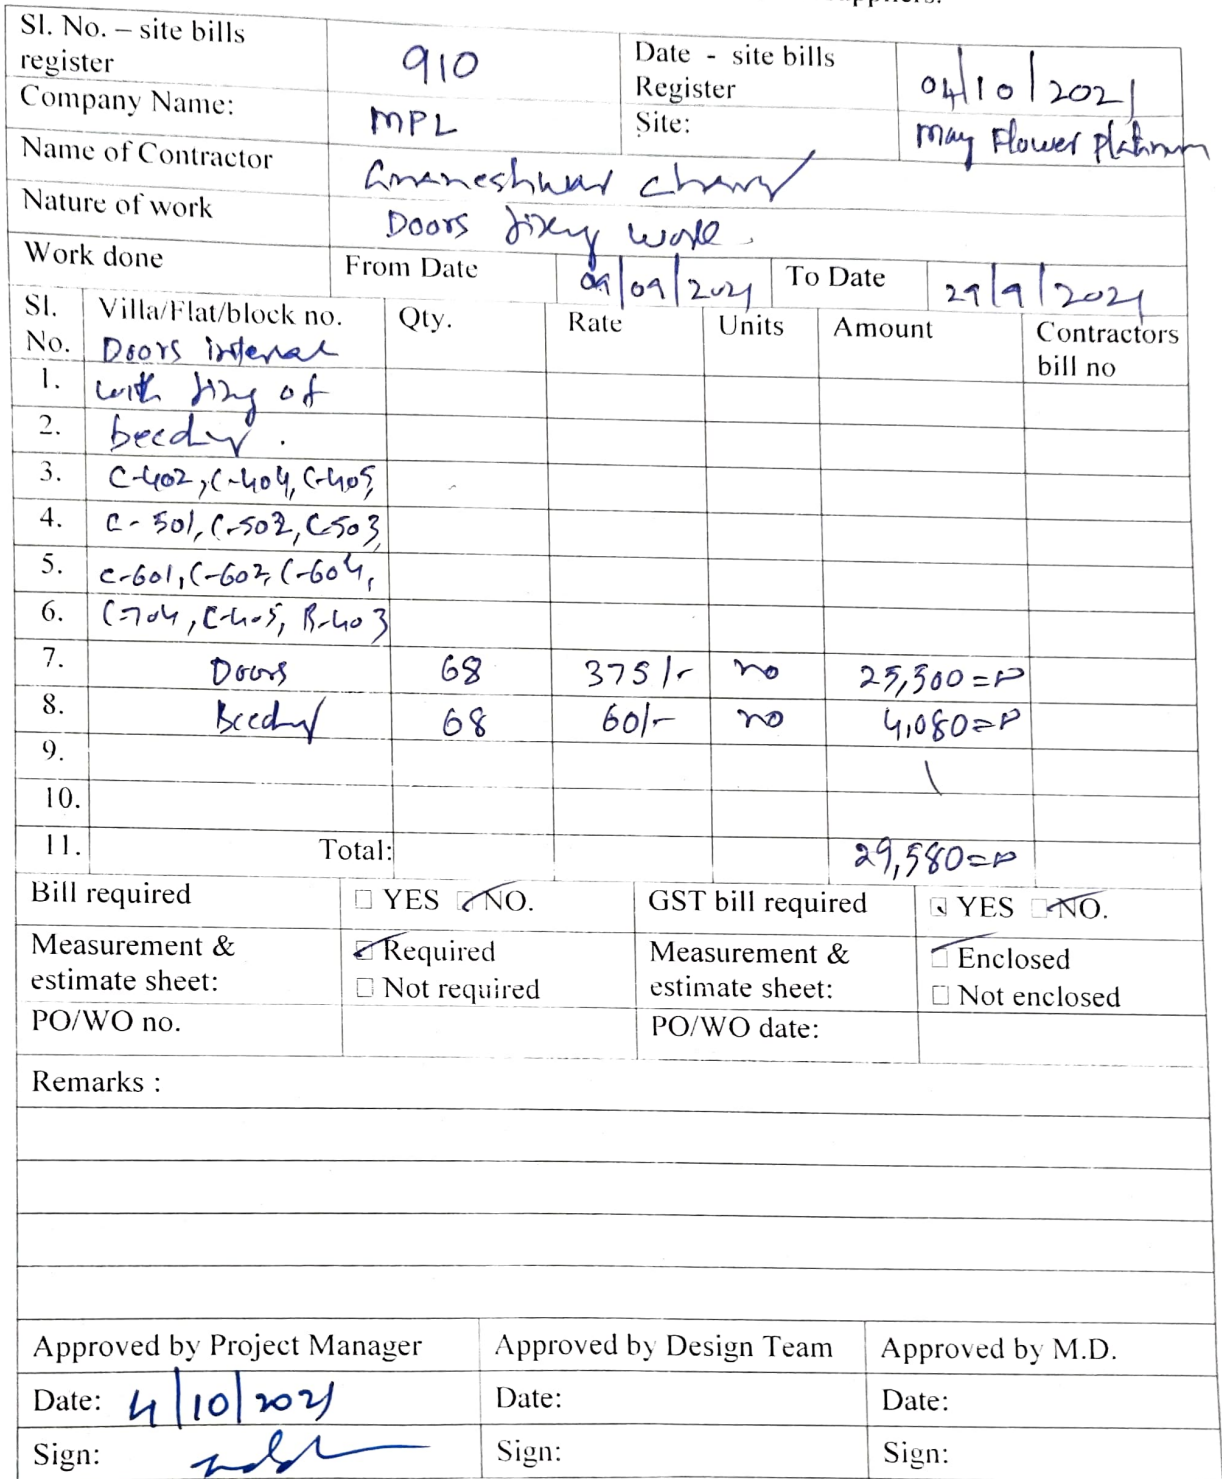 Sl. No. – site bills register 910 Date - site bills Register 04/10/2021
Company Name: MPL Site: May Flower Platinum
Name of Contractor Gnaneshwar chary
Nature of work Doors fixing work.
Work done From Date 09/09/2021 To Date 29/9/2021
Sl. No. Villa/Flat/block no. Qty. Rate Units Amount Contractors bill no
Doors internal
1. with fixing of
2. beeding.
3. C-402, C-404, C-405,
4. C-501, C-502, C-503,
5. C-601, C-602, C-604,
6. C-704, C-405, B-403
7. Doors 68 375/- no 25,500=
8. Beeding 68 60/- no 4,080=
9.
10.
11. Total: 29,580=
Bill required YES NO. GST bill required YES NO.
Measurement & estimate sheet: Required Measurement & estimate sheet: Enclosed
Not required Not enclosed
PO/WO no. PO/WO date:
Remarks :
Approved by Project Manager Approved by Design Team Approved by M.D.
Date: 4/10/2021 Date: Date:
Sign: Sign: Sign: